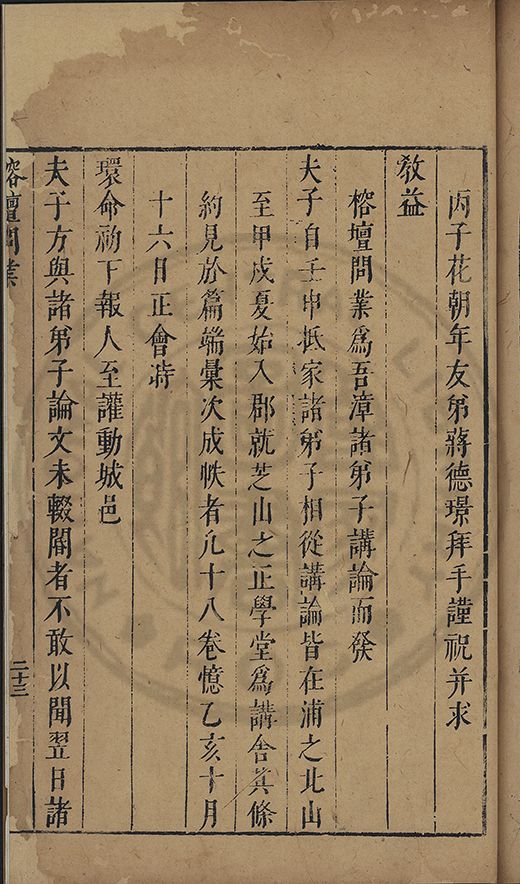 丙子花朝年友弟蔣德璟拜手謹祝并求
教益
榕壇問業爲吾漳諸弟子講論而發
夫子自壬申抵家諸弟子相從講論皆在浦之北山
至甲戌夏始入郡就芝山之正學堂爲講舍其條
約見於篇端彙次成帙者凡十八卷憶乙亥十月
十六日正會時
環命初下報人至讙動城邑
夫子方與諸弟子論文未輟閽者不敢以聞翌日諸
榕壇問業
二十三